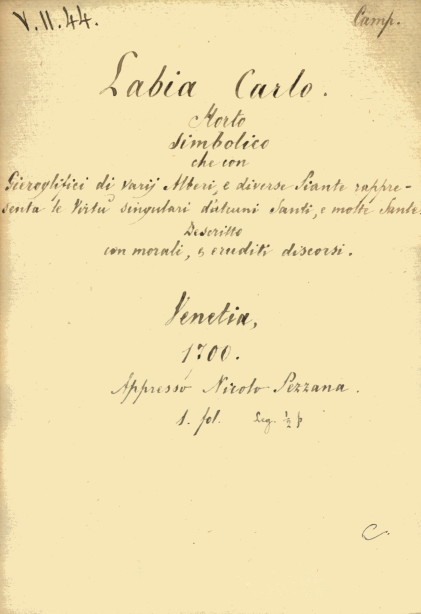 V.11.44.
Camp.
Labia Carlo.
Horto
simbolico
che con
Gieroglifici di varij Alberi, e diverse Piante rappre-
senta le Virtù singulari d'alcuni Santi, e molte Sante.
Descritto
con morali, e eruditi discorsi.
Venetia,
1700.
Appresso Nicolo Pezzana.
1. fol. Leg. ½ p
C